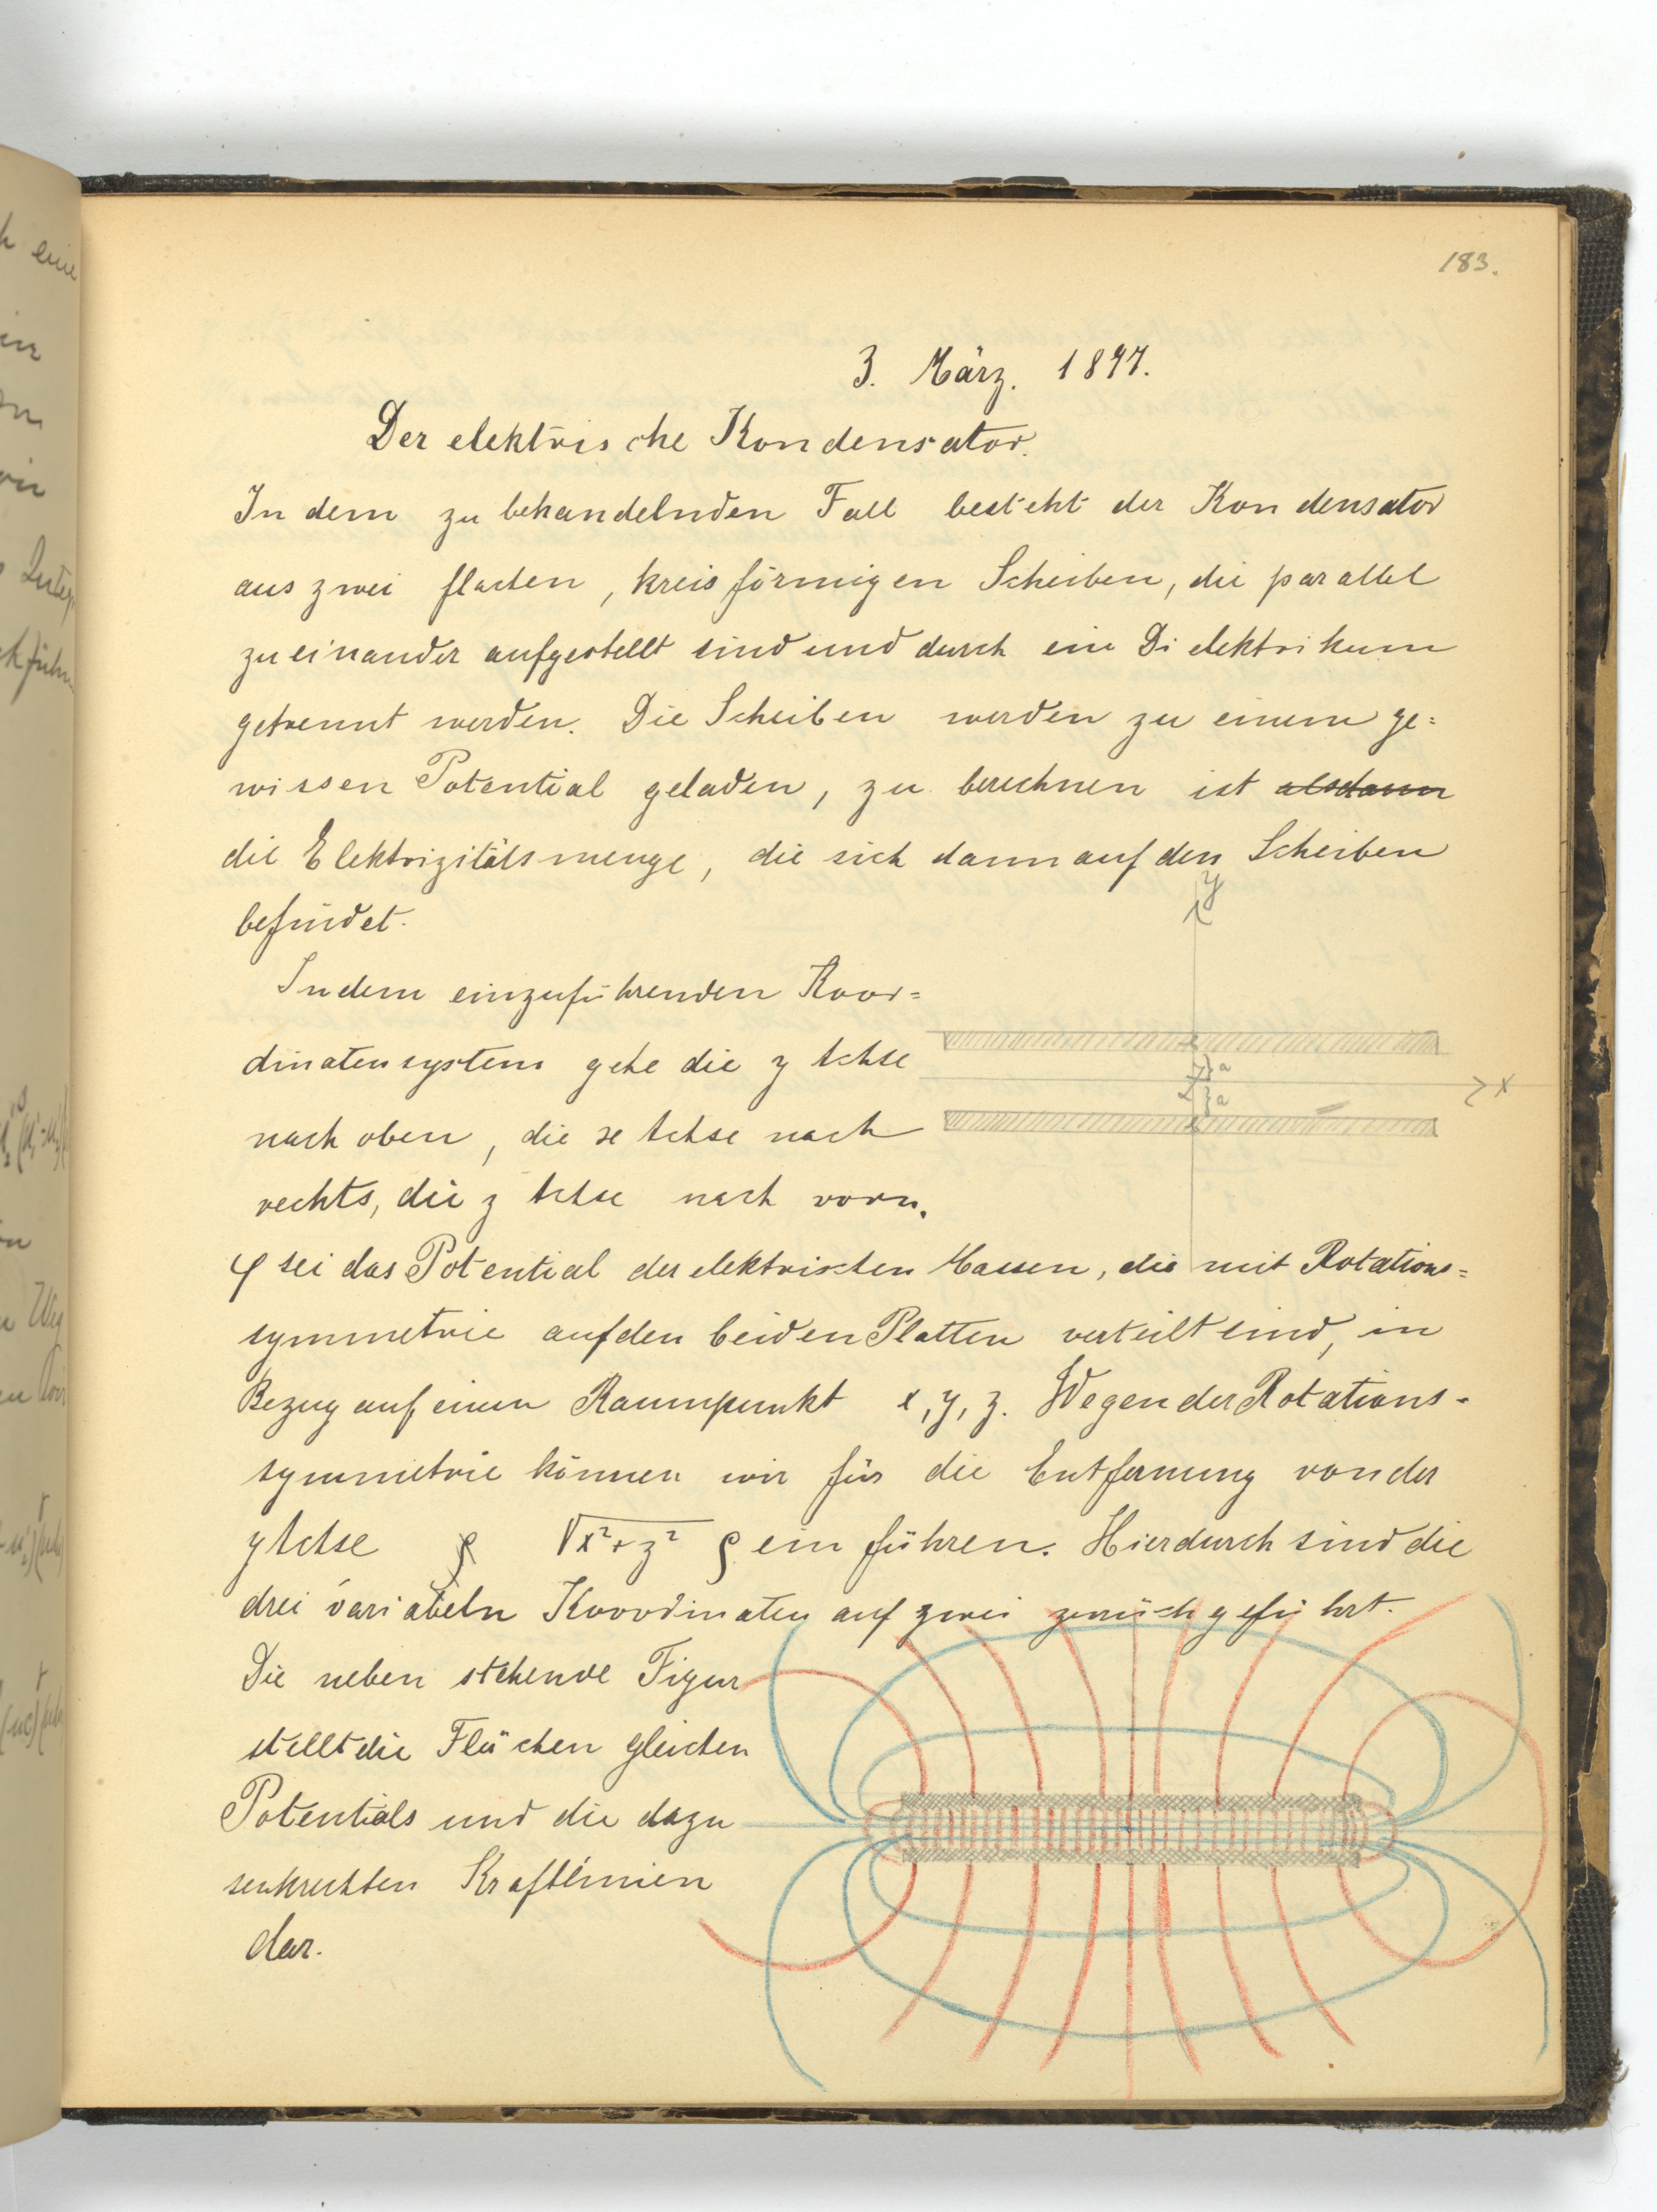 183.
3. März. 1897.
Der elektrische Kondensator.
In dem zu behandelnden Fall besteht der Kondensator
aus zwei flachen, kreisförmigen Scheiben, die parallel
zueinander aufgestellt sind und durch ein Dielektrikum
getrennt werden. Die Scheiben werden zu einem ge=
wissen Potential geladen, zu berechnen ist alsdann
die Elektrizitätsmenge, die sich dann auf den Scheiben
befindet.
In dem einzuführenden Koor=
dinatensystem gehe die y Achse
nach oben, die x Achse nach
rechts, die z Achse nach vorn.
y
a
a
x
φ sei das Potential der elektrischen Massen, die mit Rotations=
symmetrie auf den beiden Platten verteilt sind, in
Bezug auf einen Raumpunkt x, y, z. Wegen der Rotations-
symmetrie können wir für die Entfernung von der
y Achse ρ √x²+z² ρ einführen. Hierdurch sind die
drei variabeln Koordinaten auf zwei zurückgeführt.
Die nebenstehende Figur
stellt die Flächen gleichen
Potentials und die dazu
senkrechten Kraftlinien
dar.